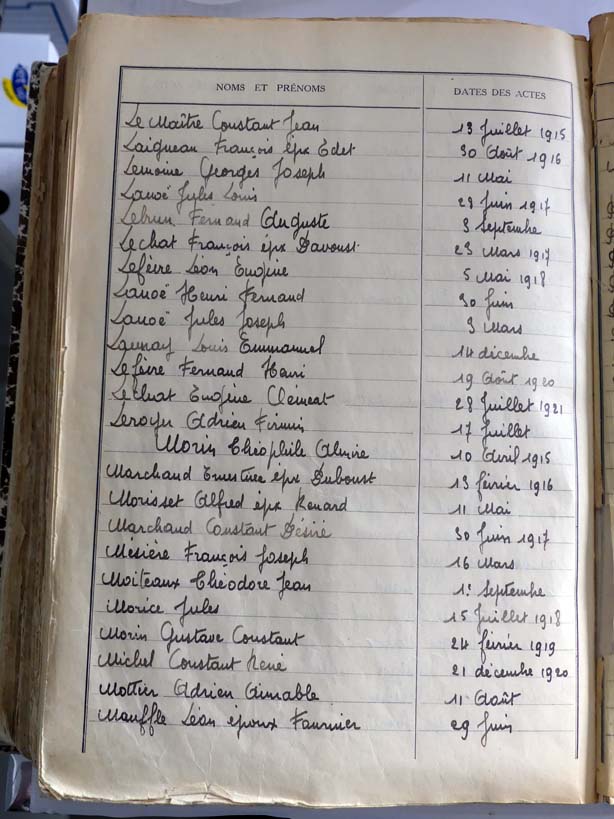 NOMS ET PRÉNOMS DATES DES ACTES
Le Maître Constant Jean 13 Juillet 1915
Laigneau François épx Edet 30 Août 1916
Lemoine Georges Joseph 11 Mai
Lanoë Jules Louis 29 Juin 1917
Lebrun Fernand Auguste 3 Septembre
Lechat François épx Davoust 23 Mars 1917
Lefèvre Léon Eugène 5 Mai 1918
Lanoë Henri Fernand 30 Juin
Lanoë Jules Joseph 3 Mars
Launay Louis Emmanuel 14 décembre
Lefèvre Fernand Henri 19 Août 1920
Lechat Eugène Clément 28 Juillet 1921
Leroyer Adrien Firmin 17 Juillet
Morin Théophile 10 Avril 1915
Marchand Ernestine épx Duboust 13 février 1916
Morisset Alfred épx Renard 11 Mai
Marchand Constant Désiré 30 Juin 1917
Mésière François Joseph 16 Mars
Moiteaux Théodore Jean 1er Septembre
Morice Jules 15 Juillet 1918
Morin Gustave Constant 24 février 1919
Michel Constant René 21 décembre 1920
Mottier Adrien Aimable 11 Août
Mauffle Léon époux Fournier 29 Juin